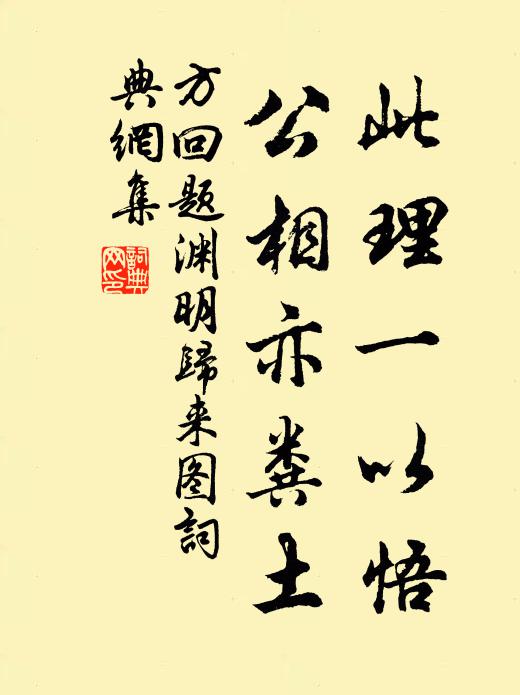 此理一以悟
公相亦粪土
方回题渊明歸来图詞
典網集
詞典
网印